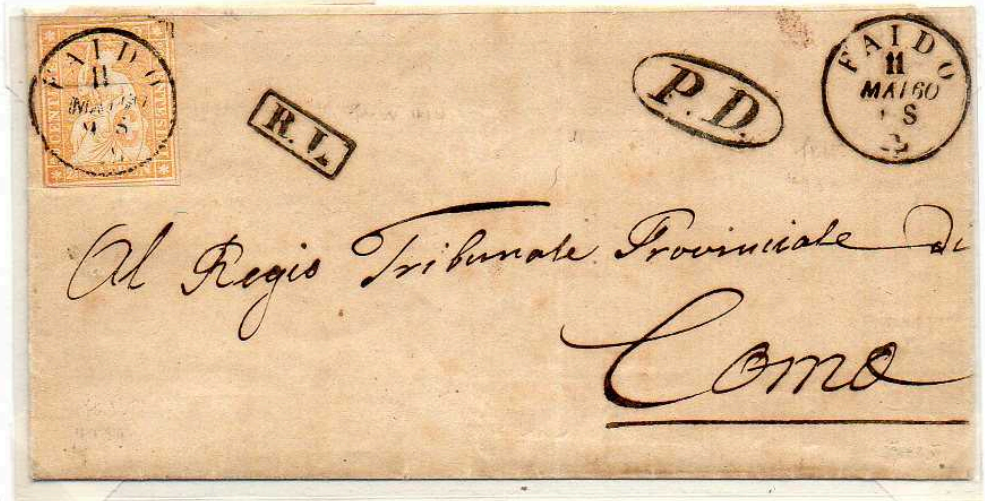 FAIDO
11
MAI 60
S
R. L.
P. D.
FAIDO
11
MAI 60
S
Al Regio Tribunale Provinciale di
Como